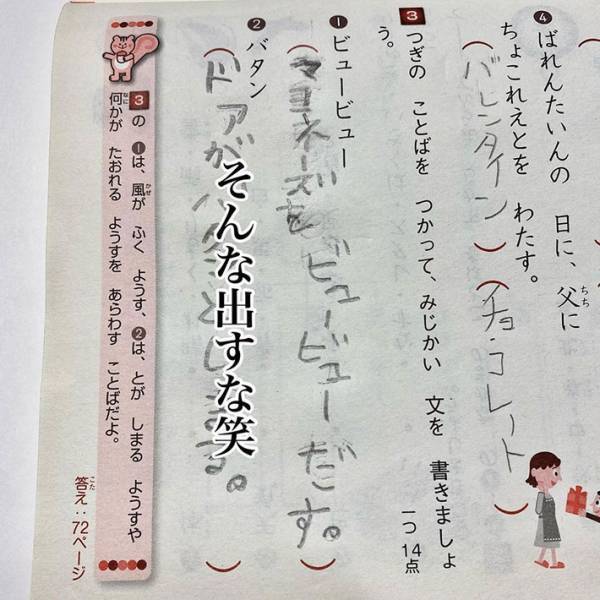 ④ ばれんたいんの 日に、父に
ちち
ちょこれえとを わたす。
(バレンタイン)(チョコレート)
3 つぎの ことばを つかって、みじかい 文を 書きましょ
う。
一つ 14点
① ビュービュー
(マヨネーズをビュービューだす。)
② バタン
(ドアがバタンとしまる。)
そんな出すな笑
3の ①は、風が ふく ようす、②は、とが しまる ようすや
かぜ
何かが たおれる ようすを あらわす ことばだよ。
なに
答え:72ページ
こた